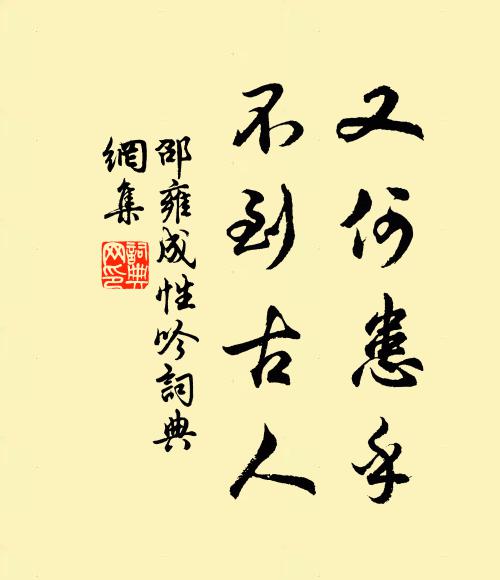 又何患乎
不到古人
邵雍成性吟詞典
網集
詞典
网印